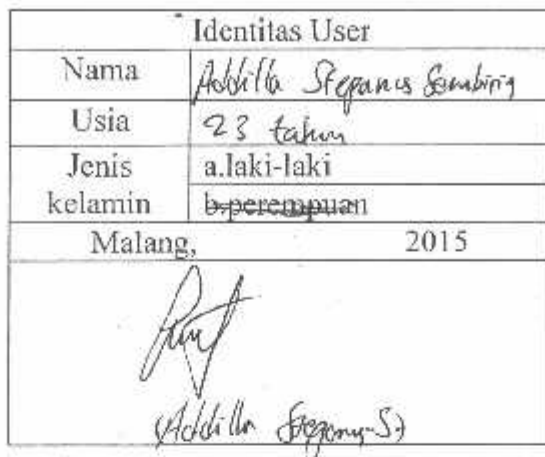 Identitas User
Nama Addilla Stepanus Sembiring
Usia 23 tahun
Jenis kelamin a.laki-laki
b.perempuan
Malang, 2015
(Addilla Stepanus S.)